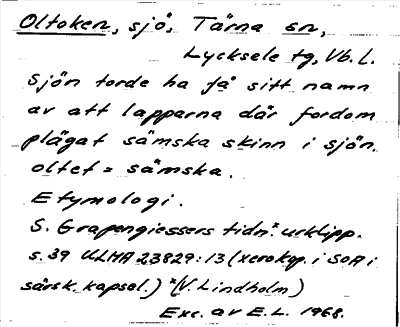 Oltoken, sjö, Tärna sn,
Lycksele tg, Vb. L.
Sjön torde ha få sitt namn
av att lapparna där fordom
plägat sämska skinn i sjön.
oltet = sämska.
Etymologi.
S. Grapengiessers tidn:s urklipp.
s. 39 ULMA 23829:13 (xerokop. i SOA i
särsk. kapsel.) (V. Lindholm)
Exc. av E.L. 1968.